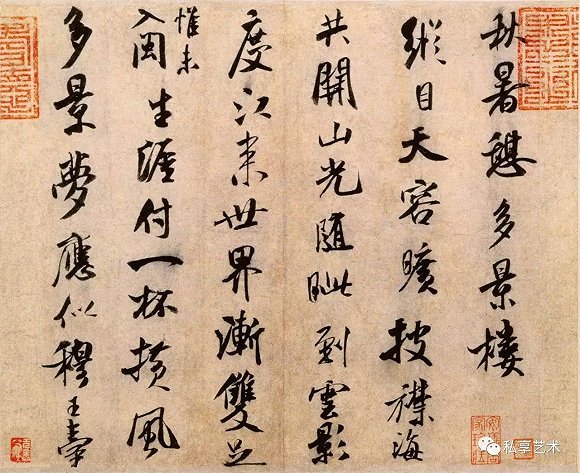 秋暑憩多景樓
縱目天容曠披襟海
共開山光随眦到雲影
度江来世界漸雙足
惟未
入閩生涯付一杯横風
多景夢應似穆王臺
私享艺术